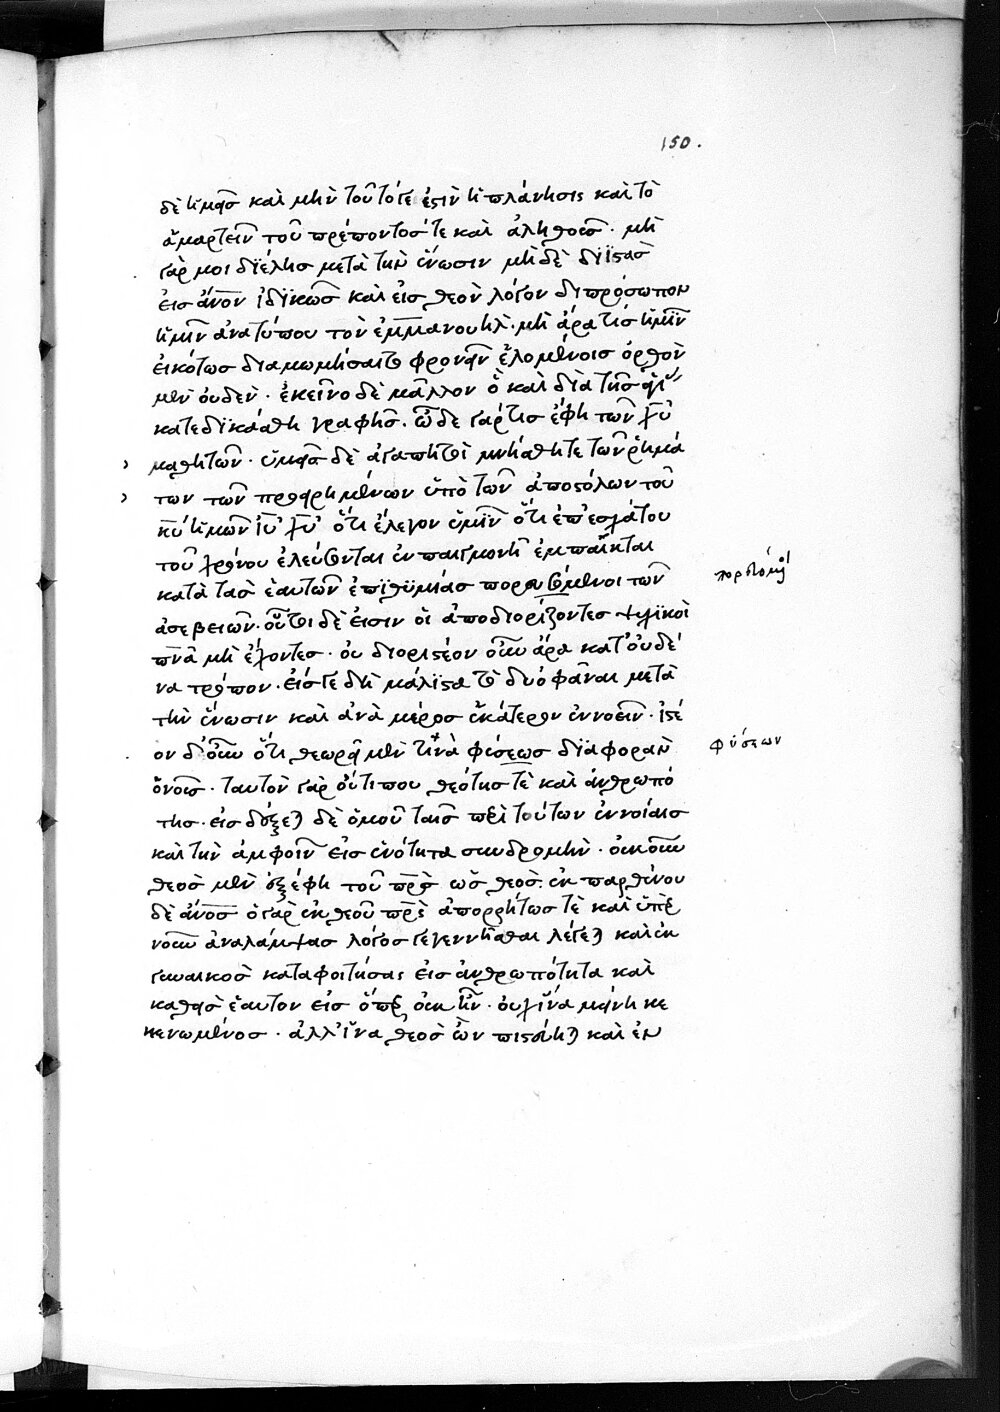 150.
δὲ ἡμᾶσ καὶ μὴν τοῦτό γε ἐστὶν ἡ πλάνησις καὶ τὸ
ἁμαρτεῖν τοῦ πρέποντοσ τε καὶ ἀληθοῦσ· μὴ
γάρ μοι διέλησ μετὰ τὴν ἕνωσιν μὴ δὲ διϊστὰσ
εἰσ ἄνον ἰδικῶσ καὶ εἰσ θεὸν λόγον διπρόσωπον
ἡμῖν ἀνατύπου τὸν ἐμμανουήλ· μὴ ἄρα τίσ ἡμῖν
εἰκότωσ διαμωμήσαιτο φρονεῖν ἑλομένοισ ὀρθὸν
μὲν οὐδέν· ἐκεῖνο δὲ μᾶλλον ὃ καὶ διὰ τῆσ
κατεδικάσθη γραφῆσ· ὧδε γάρ τισ ἔφη τῶν χυ
μαθητῶν· ὑμεῖσ δὲ ἀγαπητοὶ μνήσθητε τῶν ῥημά
των τῶν προειρημένων ὑπὸ τῶν ἀποστόλων τοῦ
κυ ἡμῶν ιυ χυ ὅτι ἔλεγον ὑμῖν ὅτι ἐπ' ἐσχάτου
τοῦ χρόνου ἐλεύσονται ἐν παιγμονῆ ἐμπαῖκται
κατὰ τὰσ ἑαυτῶν ἐπιθυμίασ πορευόμενοι τῶν
πορευόμενοι
ἀσεβειῶν· οὗτοι δέ εἰσιν οἱ ἀποδιορίζοντεσ ψυχικοὶ
πνα μὴ ἔχοντεσ· οὐ διοριστέον οὖν ἄρα κατ' οὐδέ
να τρόπον· εἴσ τε δὴ μάλιστα τὸ δύο φᾶναι μετὰ
τὴν ἕνωσιν καὶ ἀνὰ μέροσ ἑκάτερον ἐννοεῖν· ἰστέ
ον δ' οὖν ὅτι θεωρεῖ μὲν τινὰ φύσεωσ διαφορὰν
φύσεων
ὁ νοῦσ· ταυτὸν γὰρ οὔτι που θεότησ τὲ καὶ ἀνθρωπό
τησ· εἰσ δέξεται δὲ ὁμοῦ ταῖσ περὶ τούτων ἐννοίαισ
καὶ τὴν ἀμφοῖν εἰσ ἑνότητα συνδρομήν· οὐκοῦν
θεὸσ μὲν ἐξέφη τοῦ πρσ ὡσ θεόσ· ἐκ παρθένου
δὲ ἄνοσ ὁ γὰρ ἐκ θεοῦ πρσ ἀπορρήτωσ τὲ καὶ ὑπὲρ
νοῦν ἀναλάμψασ λόγοσ γεγεννῆσθαι λέγεται καὶ ἐκ
γυναικὸσ καταφοιτήσασ εἰσ ἀνθρωπότητα καὶ
καθεὶσ ἑαυτὸν εἰσ ὅπερ οὐκ ἦν· οὐχ ἵνα μείνη κε
κενωμένοσ· ἀλλ' ἵνα θεὸσ ὢν πιστεύηται καὶ ἐν